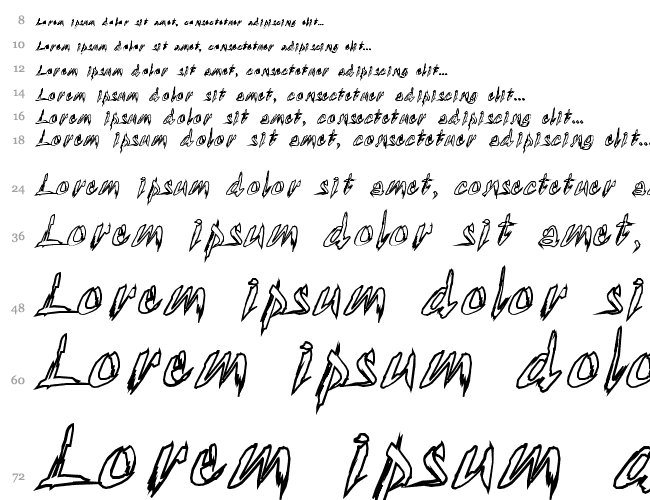 8 Lorem ipsum dolor sit amet, consectetuer adipiscing elit...
10 Lorem ipsum dolor sit amet, consectetuer adipiscing elit...
12 Lorem ipsum dolor sit amet, consectetuer adipiscing elit...
14 Lorem ipsum dolor sit amet, consectetuer adipiscing elit...
16 Lorem ipsum dolor sit amet, consectetuer adipiscing elit...
18 Lorem ipsum dolor sit amet, consectetuer adipiscing elit...
24 Lorem ipsum dolor sit amet, consectetuer a
36 Lorem ipsum dolor sit amet,
48 Lorem ipsum dolor si
60 Lorem ipsum dolo
72 Lorem ipsum d